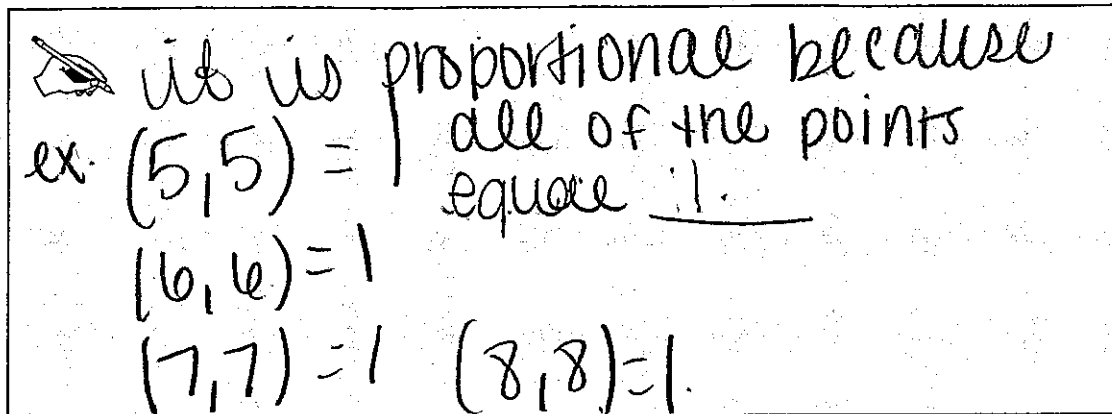 it is proportional because
ex. (5,5) = 1 all of the points
equal 1.
(6,6) = 1
(7,7) = 1 (8,8) = 1.